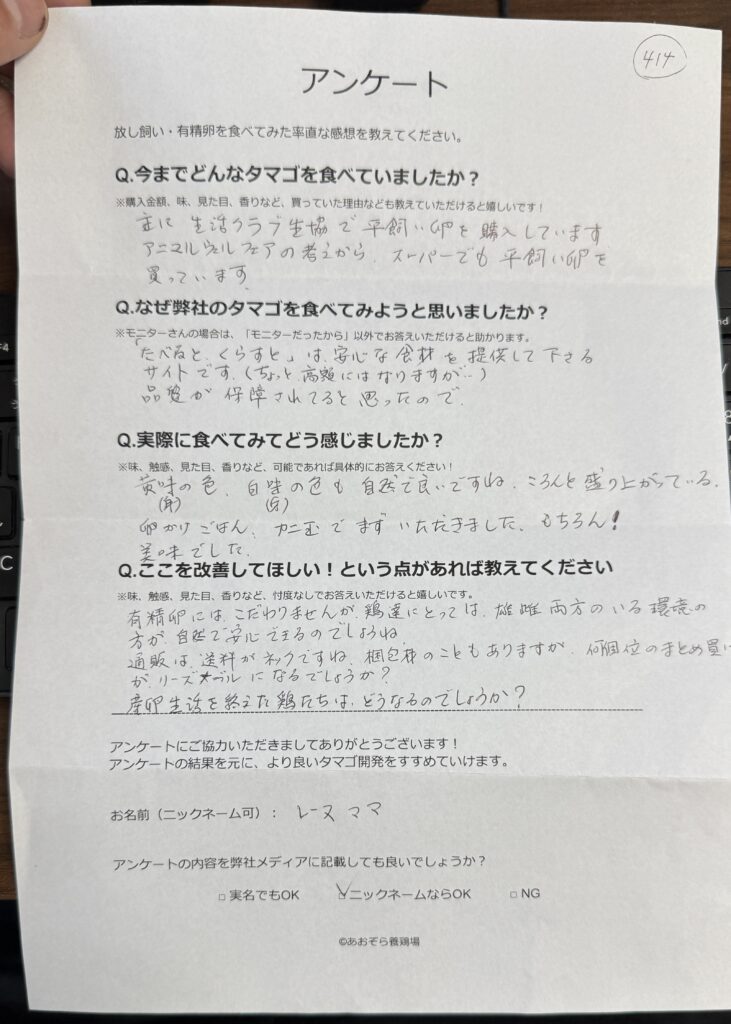 414
アンケート
放し飼い・有精卵を食べてみた率直な感想を教えてください。
Q.今までどんなタマゴを食べていましたか？
※購入金額、味、見た目、香りなど、買っていた理由なども教えていただけると嬉しいです！
主に 生活クラブ生協で 平飼い卵を購入しています
アニマルウェルフェアの考えから、スーパーでも 平飼い卵を
買っています。
Q.なぜ弊社のタマゴを食べてみようと思いましたか？
※モニターさんの場合は、「モニターだったから」以外でお答えいただけると助かります。
「たべると、くらすと」は、安心な食材を提供して下さる
サイトです。（ちょっと高額にはなりますが…）
品質が保障されてると思ったので、
Q.実際に食べてみてどう感じましたか？
※味、触感、見た目、香りなど、可能であれば具体的にお答えください！
黄味の色、白味の色も自然で良いですね、ころんと盛り上がっている、
(身) (身)
卵かけごはん、カニ玉でまずいただきました、もちろん！
美味でした、
Q.ここを改善してほしい！という点があれば教えてください
※味、触感、見た目、香りなど、忖度なしでお答えいただけると嬉しいです。
有精卵には、こだわりませんが、鶏達にとっては、雄雌両方のいる環境の
方が自然で安心できるのでしょうね、
通販は、送料がネックですね、梱包材のこともありますが、何個位のまとめ買い
が、リーズナブルになるでしょうか？
産卵生活を終えた鶏たちは、どうなるのでしょうか？
アンケートにご協力いただきましてありがとうございます！
アンケートの結果を元に、より良いタマゴ開発をすすめていけます。
お名前（ニックネーム可）： レーヌママ
アンケートの内容を弊社メディアに記載しても良いでしょうか？
□ 実名でもOK ☑ニックネームならOK □ NG
©あおぞら養鶏場